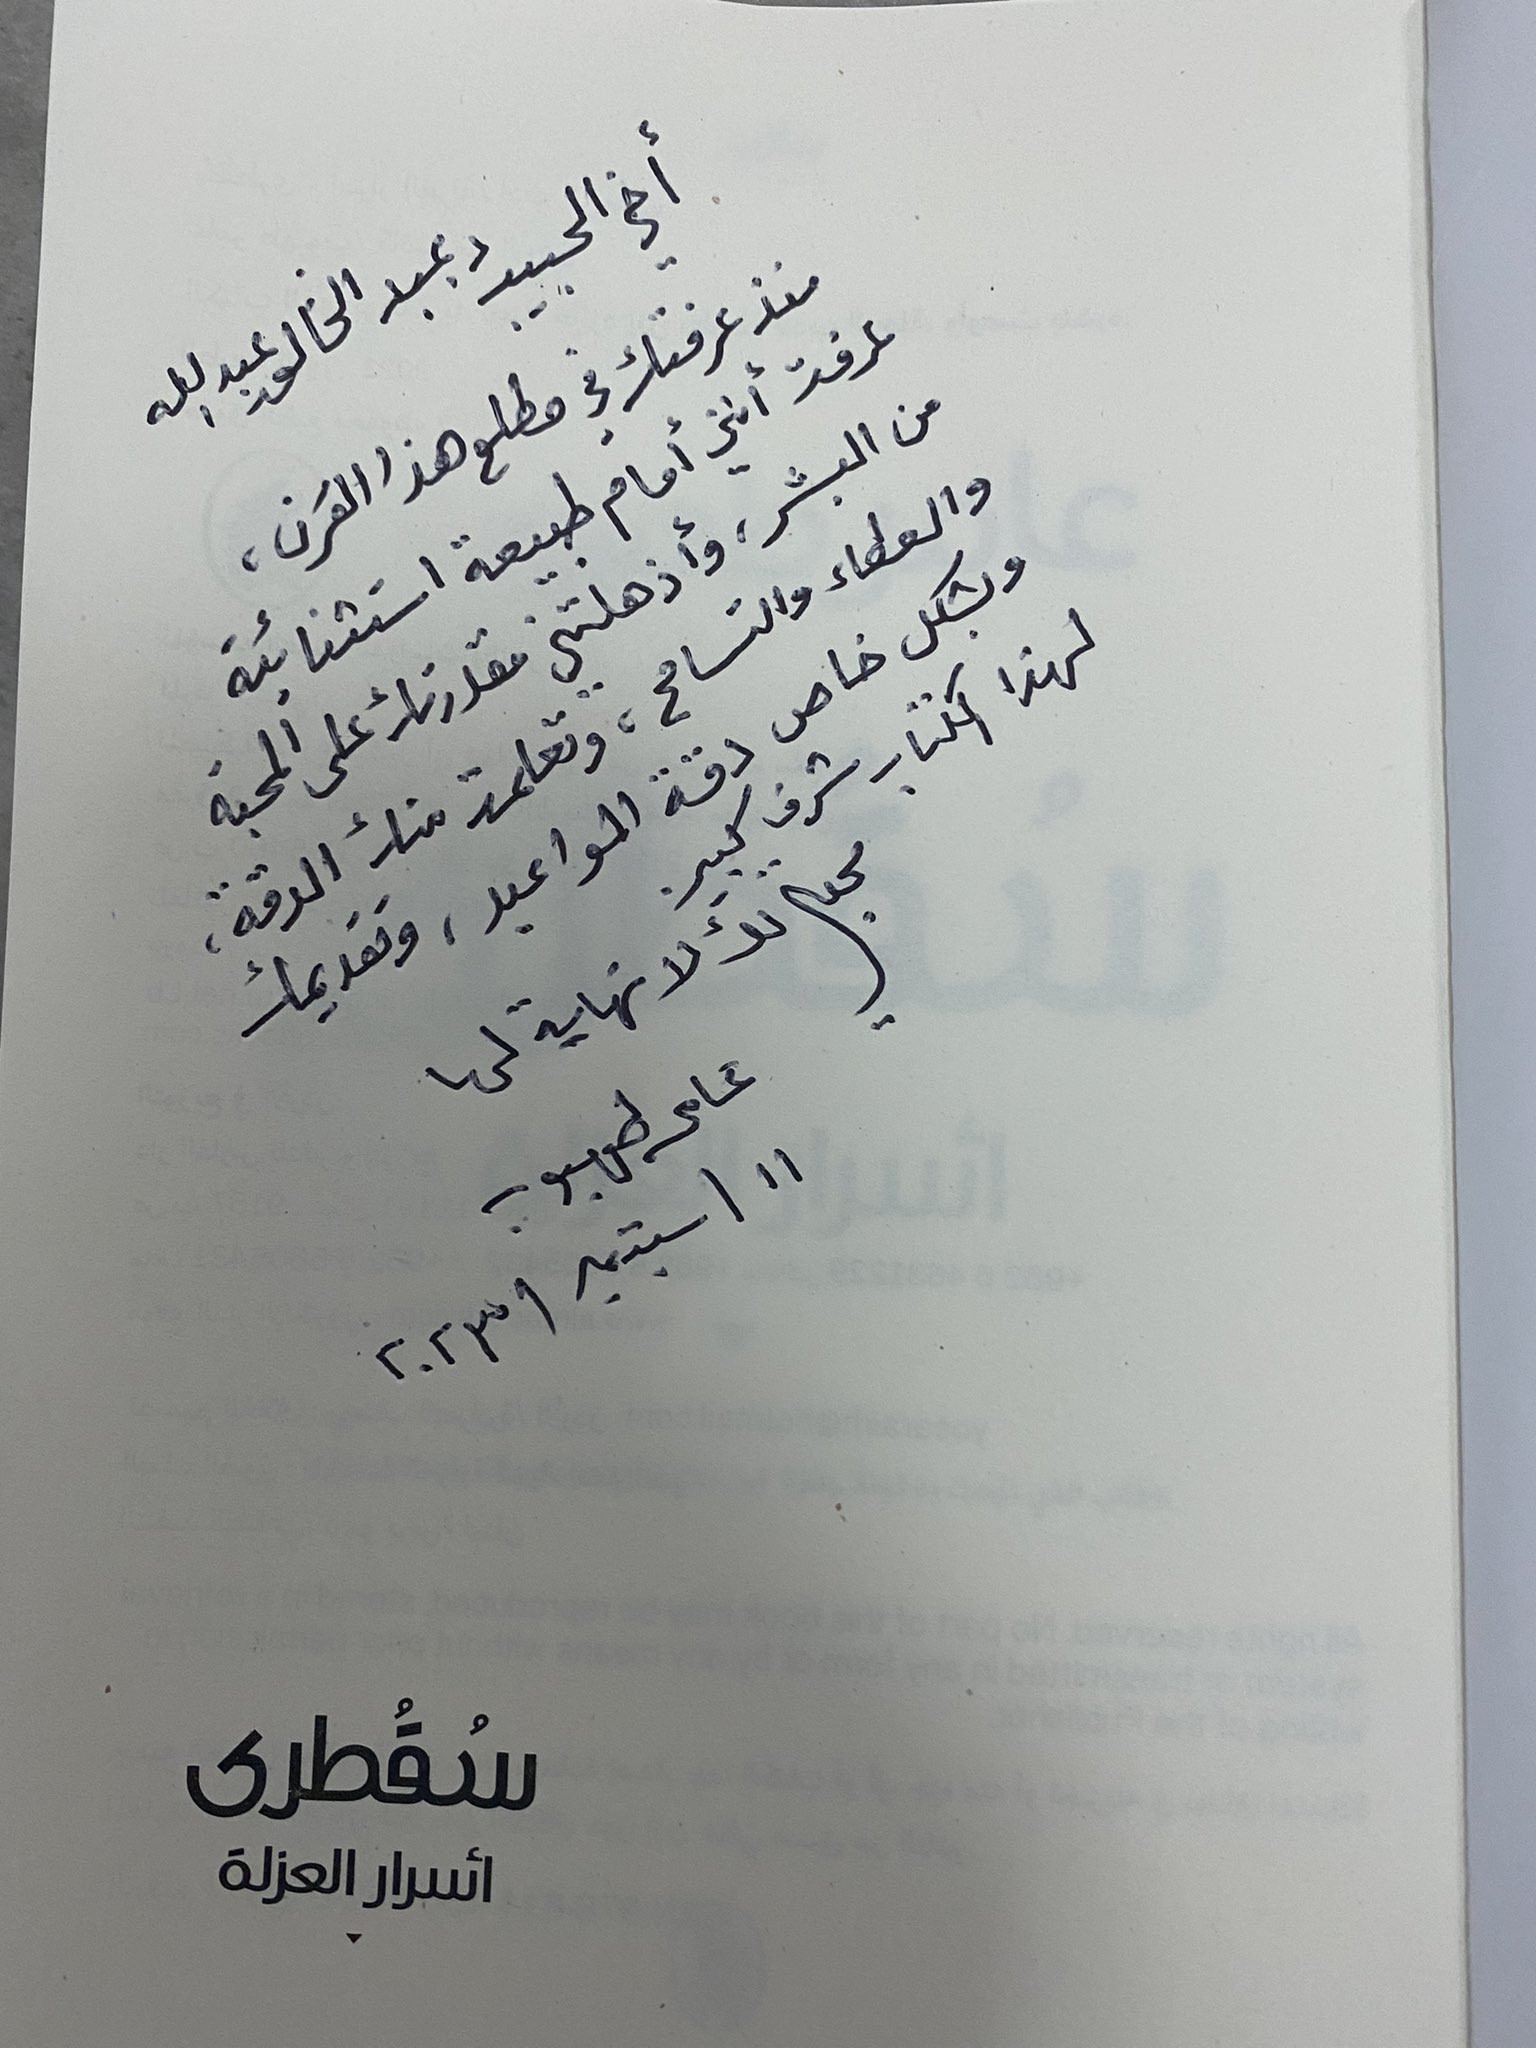 أخي الحبيب د. عبد الخالق عبد الله
منذ عرفتك في مطلع هذا القرن،
عرفت أنني أمام طبيعة استثنائية
من البشر، وأذهلتني مقدرتك على المحبة
والعطاء والتسامح، وتعلمت منك الدقة،
وبشكل خاص دقة المواعيد، وتقديمك
لهذا الكتاب شرف كبير.
لك لا نهاية لها
عامر طهبوب
١١ / سبتمبر / ٢٠٢٣
سُقُطرى
أسرار العزلة